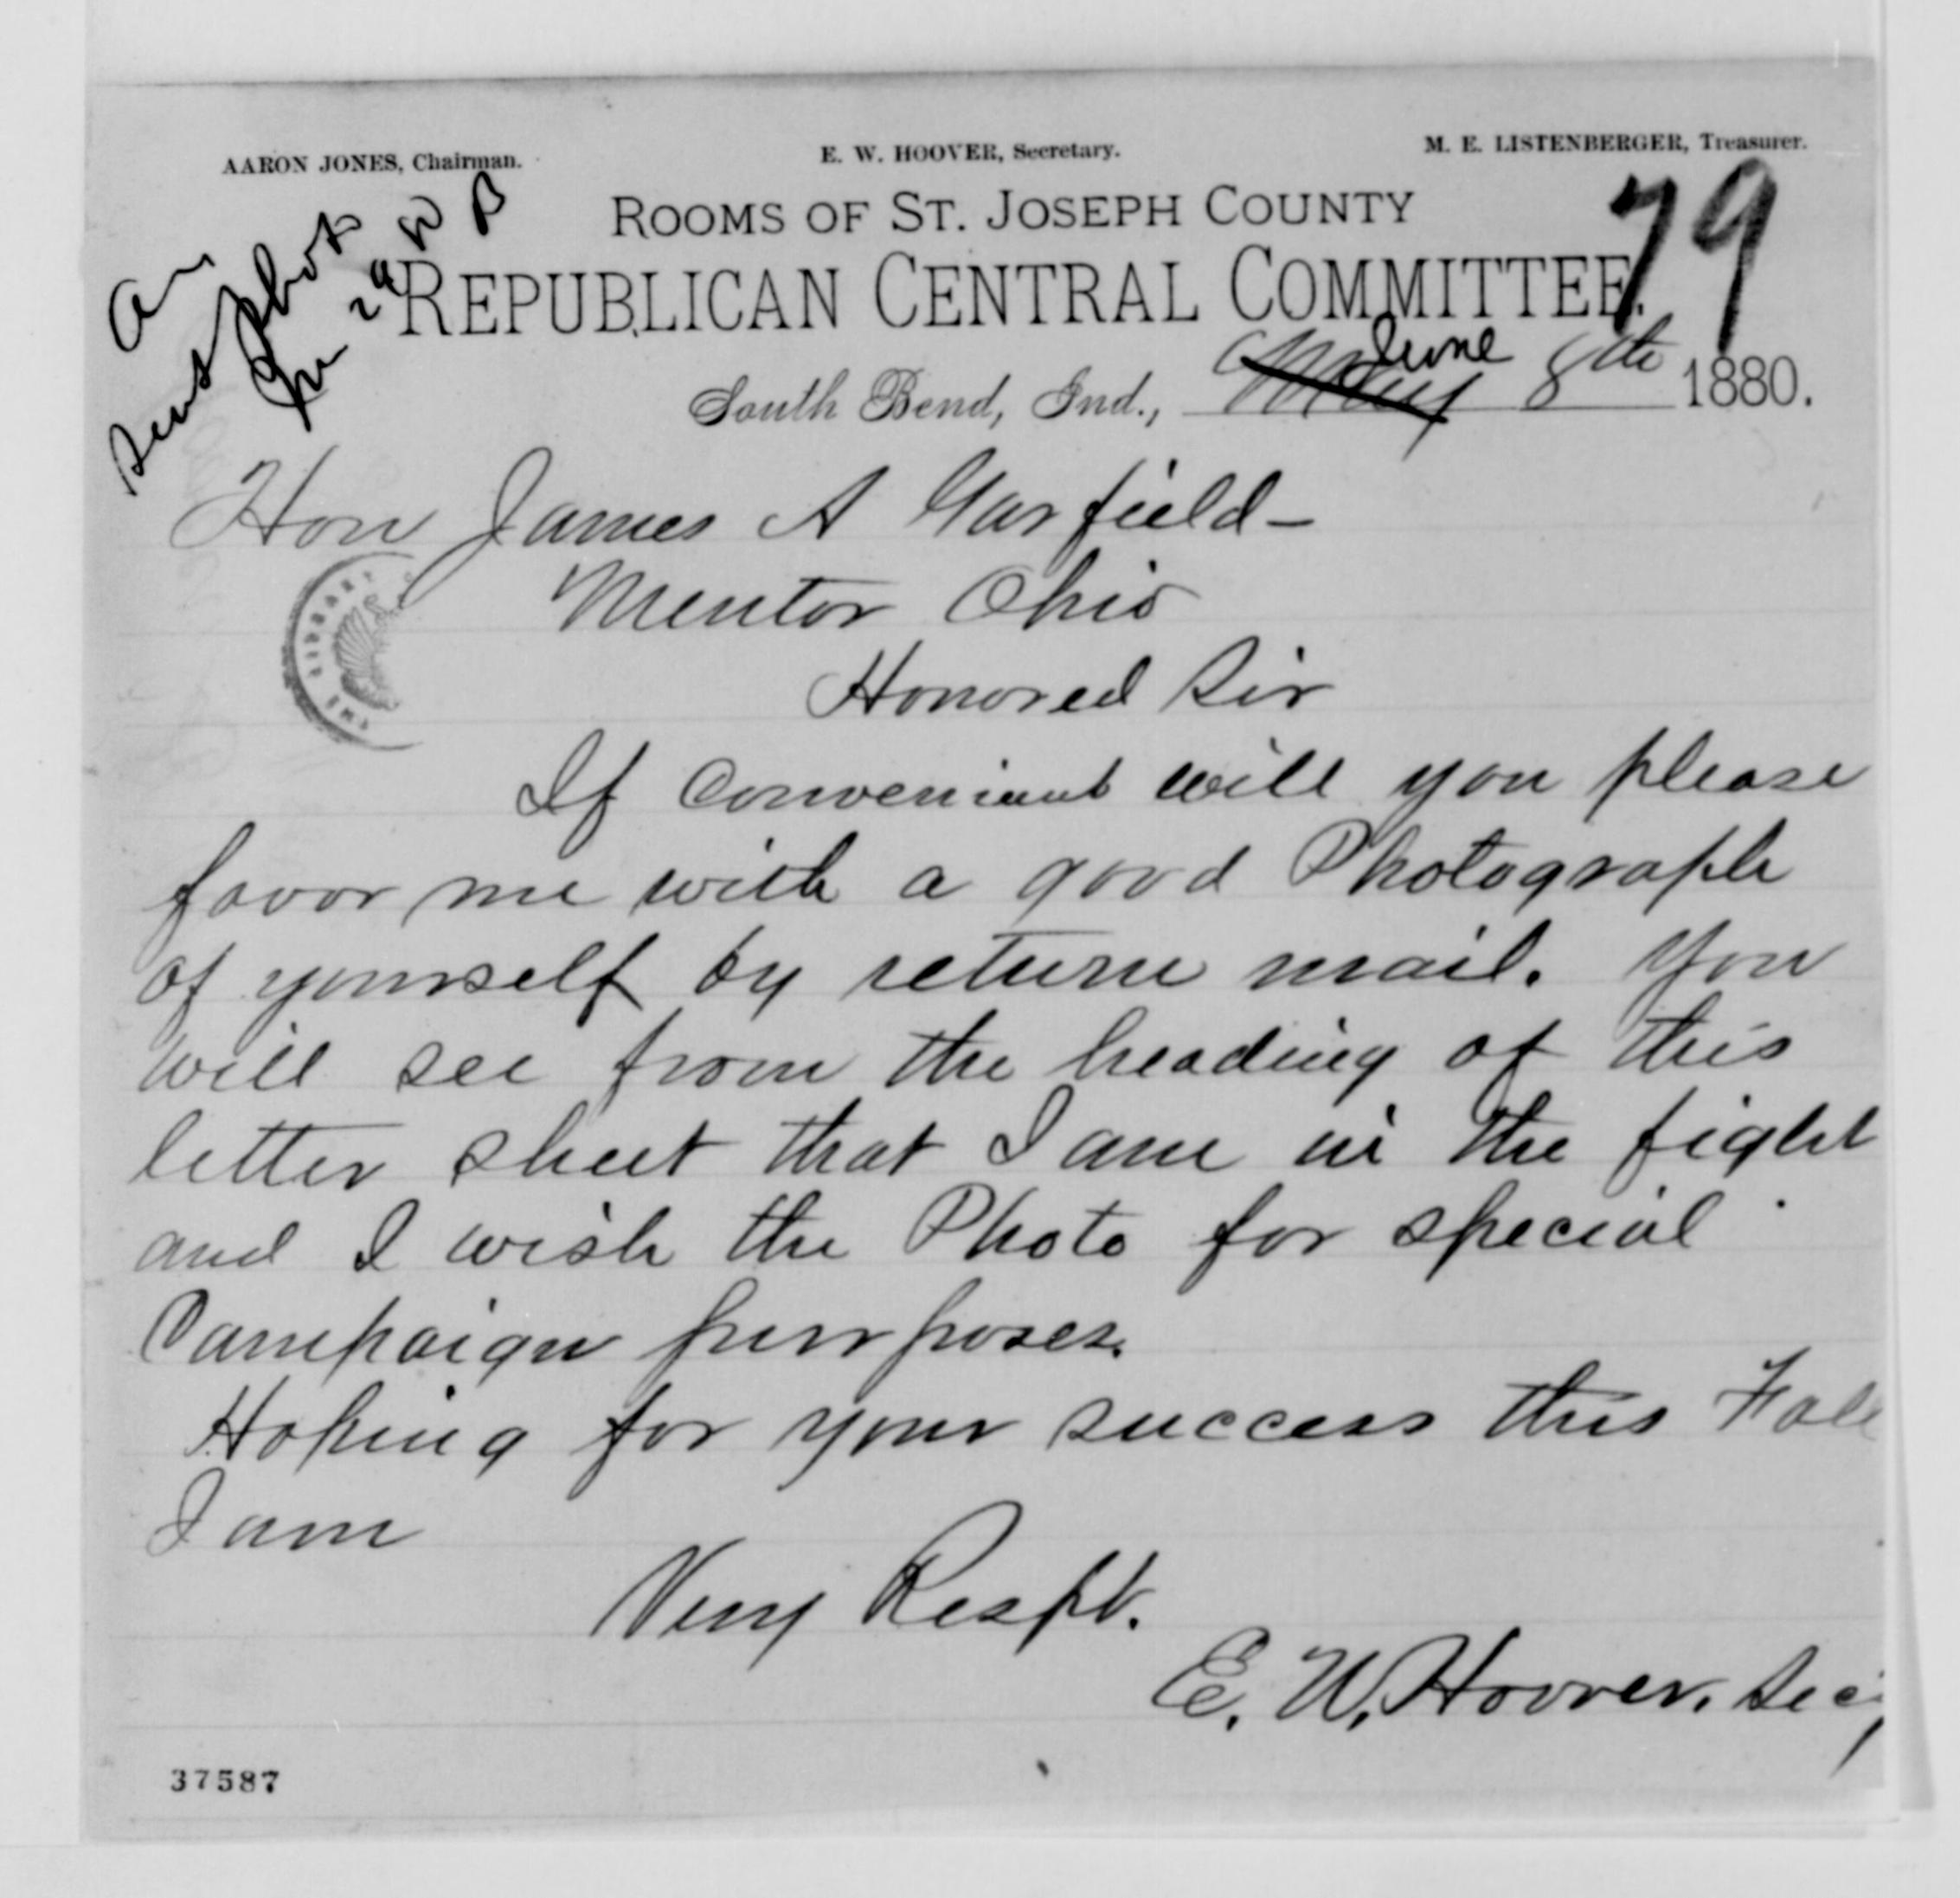 AARON JONES, Chairman.
E. W. HOOVER, Secretary.
M. E. LISTENBERGER, Treasurer.
ROOMS OF ST. JOSEPH COUNTY
REPUBLICAN CENTRAL COMMITTEE.
79
An
Sent Photo
June
South Bend, Ind., May June 8th 1880.
Hon James A Garfield-
Mentor Ohio
THE LIBRARY
Honored Sir
If convenient will you please
favor me with a good Photograph
of yourself by return mail. You
will see from the heading of this
letter sheet that I am in the fight
and I wish the Photo for special
Campaign purposes.
Hoping for your success this Fall
I am
Very Respt.
E. W. Hoover, Secy
37587